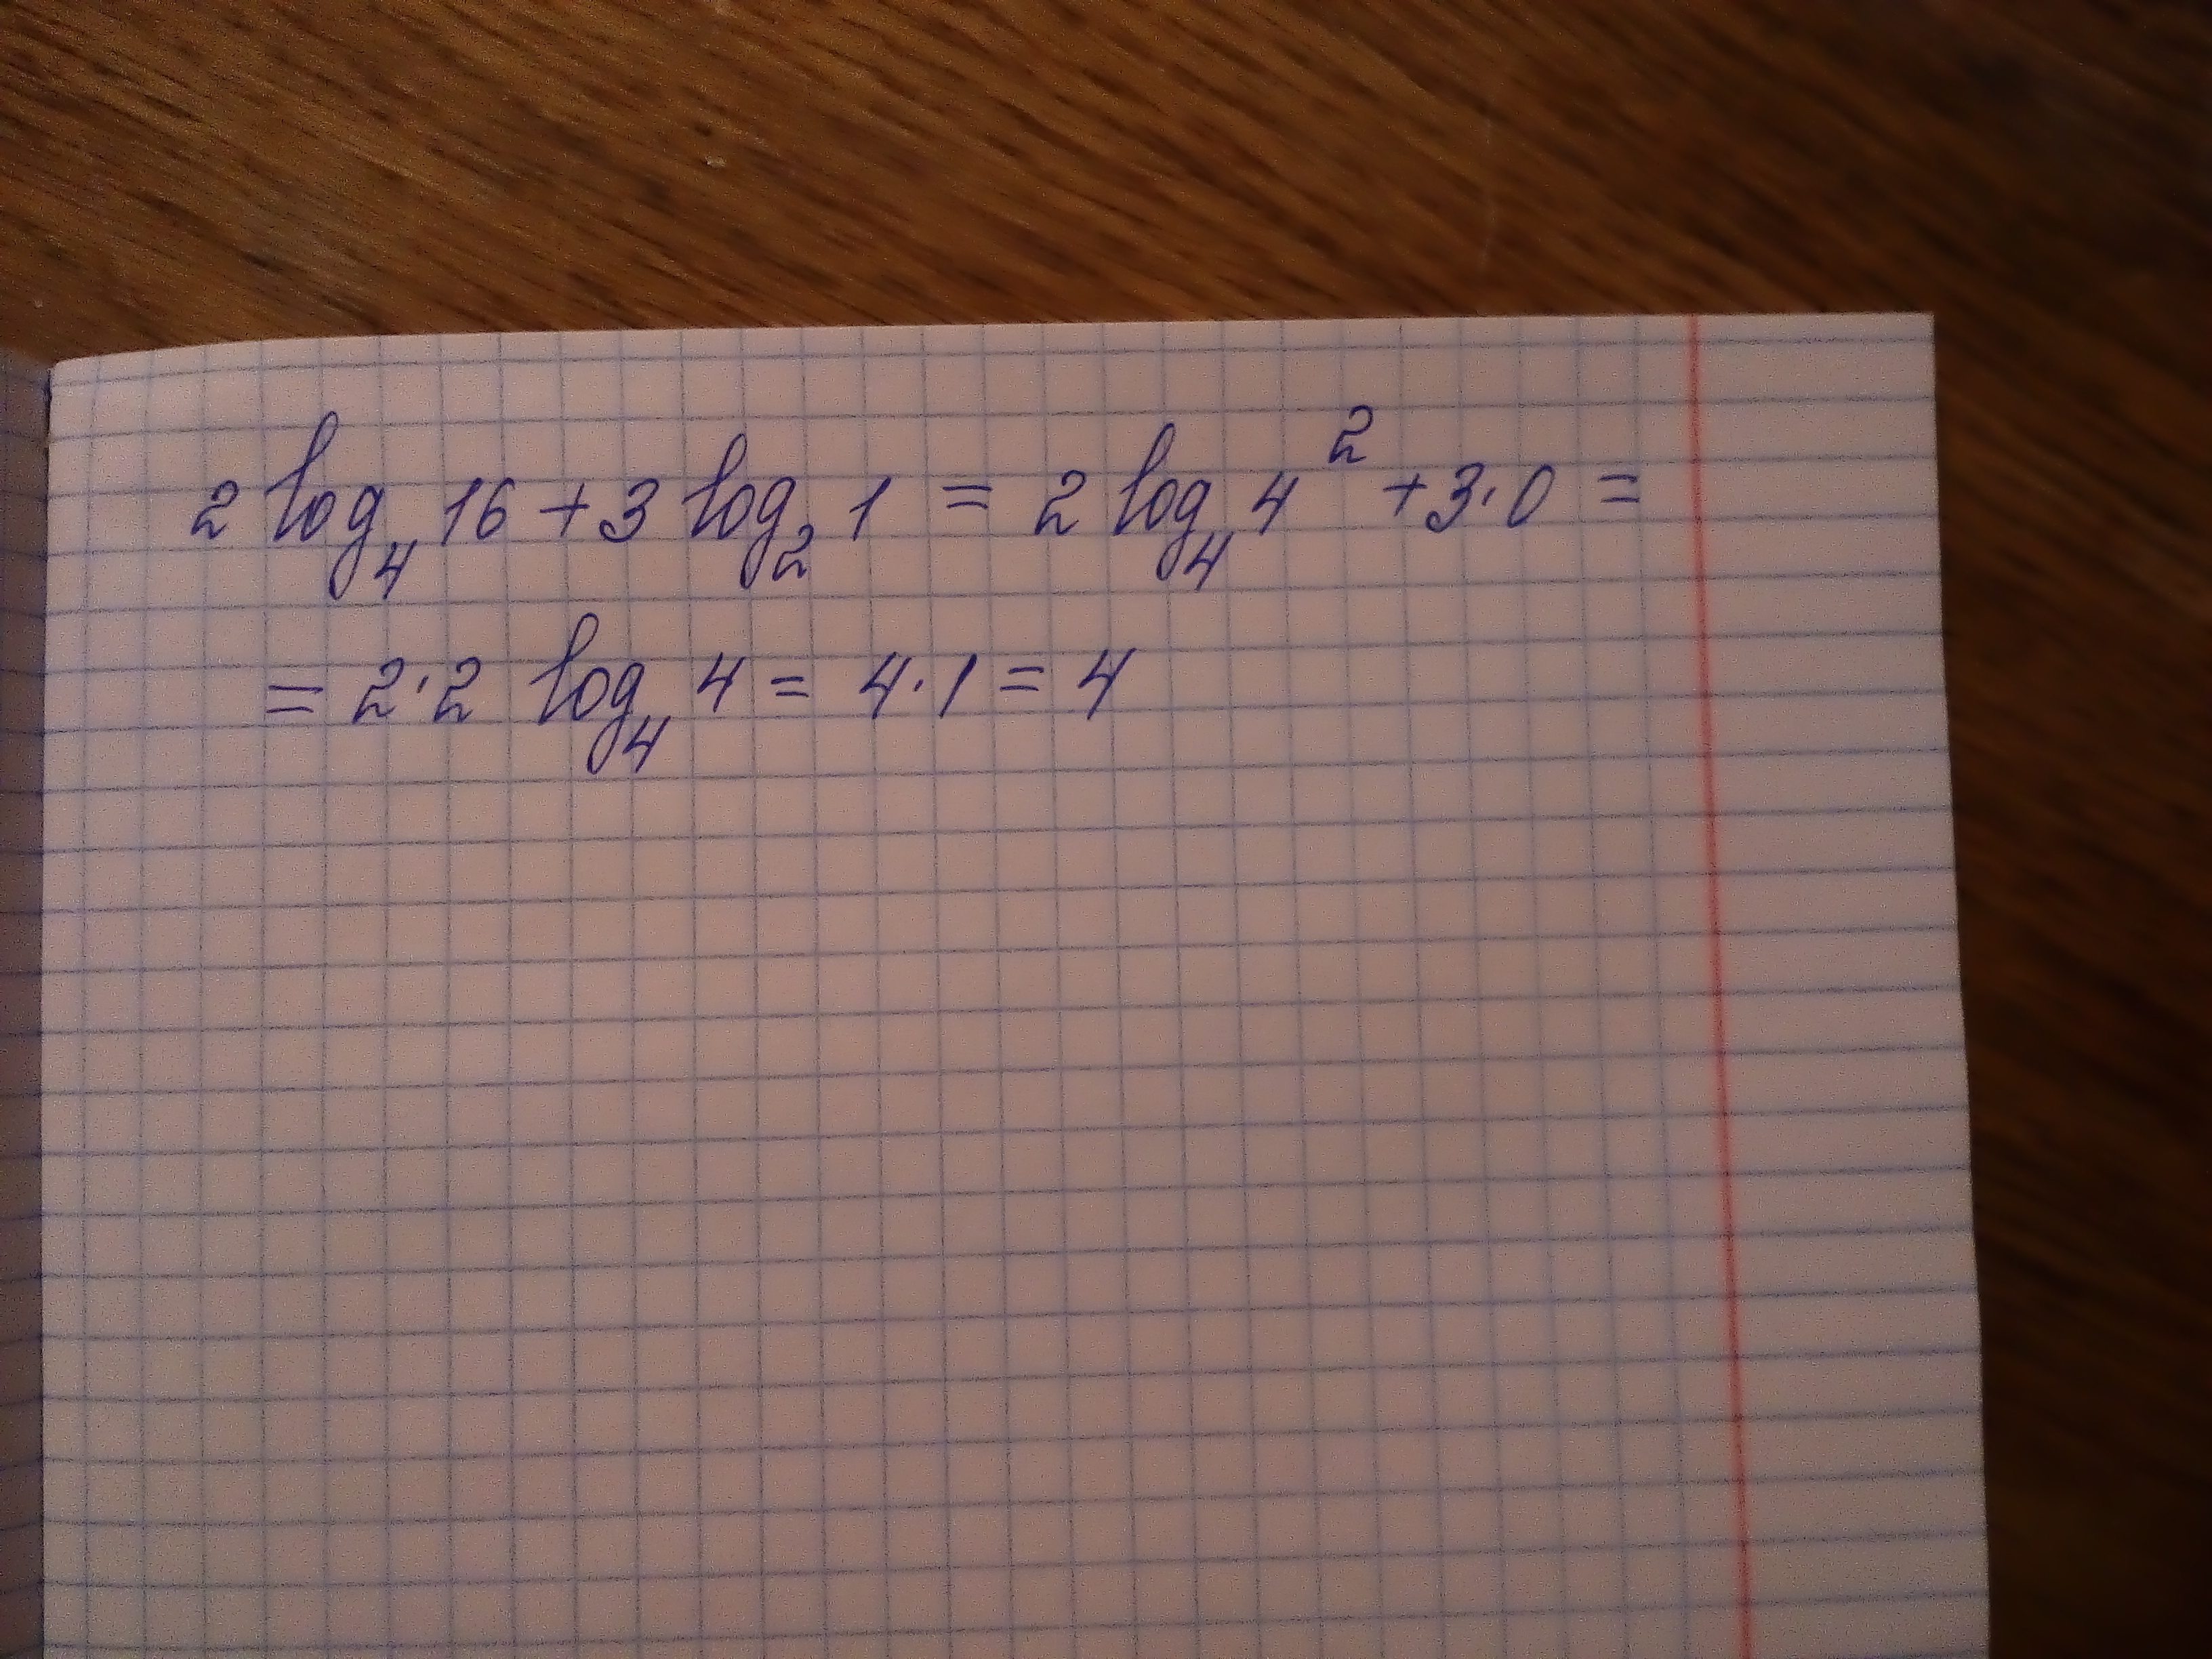 2 log₄ 16 + 3 log₂ 1 = 2 log₄ 4² + 3·0 =
= 2·2 log₄ 4 = 4·1 = 4